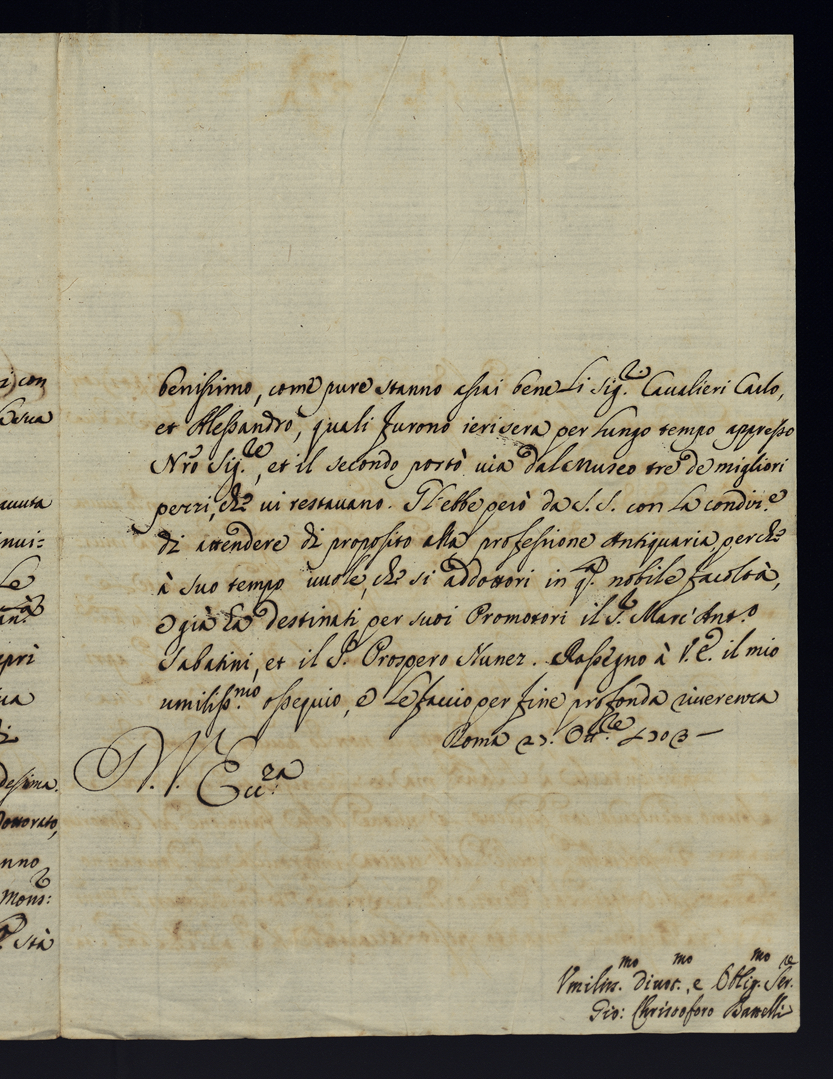 i con
sua
avuta
invi:
Le
an.
aprì
ua
di
desima.
Dottorato,
nno
Mons:
stà
benissimo, come pure stanno assai bene Li Sig.ri Cavalieri Carlo,
et Alessandro, quali furono ierisera per lungo tempo appresso
Nro Sig.re, et il secondo portò via dal Museo tre de migliori
pezzi, che vi restavano. Gl'ebbe però da S. S. con La condiz.e
di attendere di proposito alla professione Antiquaria, perche
à suo tempo vuole, che si addottori in q.ta nobile facoltà,
e già ha destinati per suoi Promotori il S.r Marc'Ant.o
Sabatini, et il S.r Prospero Nunez. Rassegno à V. E. il mio
umiliss.mo ossequio, e Le faccio per fine profonda riverenza
Roma 27. Ott.bre 1703 -
D. V. Ecc.za
Umilis.mo divot.mo, e Oblig.mo Ser.re
Gio: Christoforo Battelli